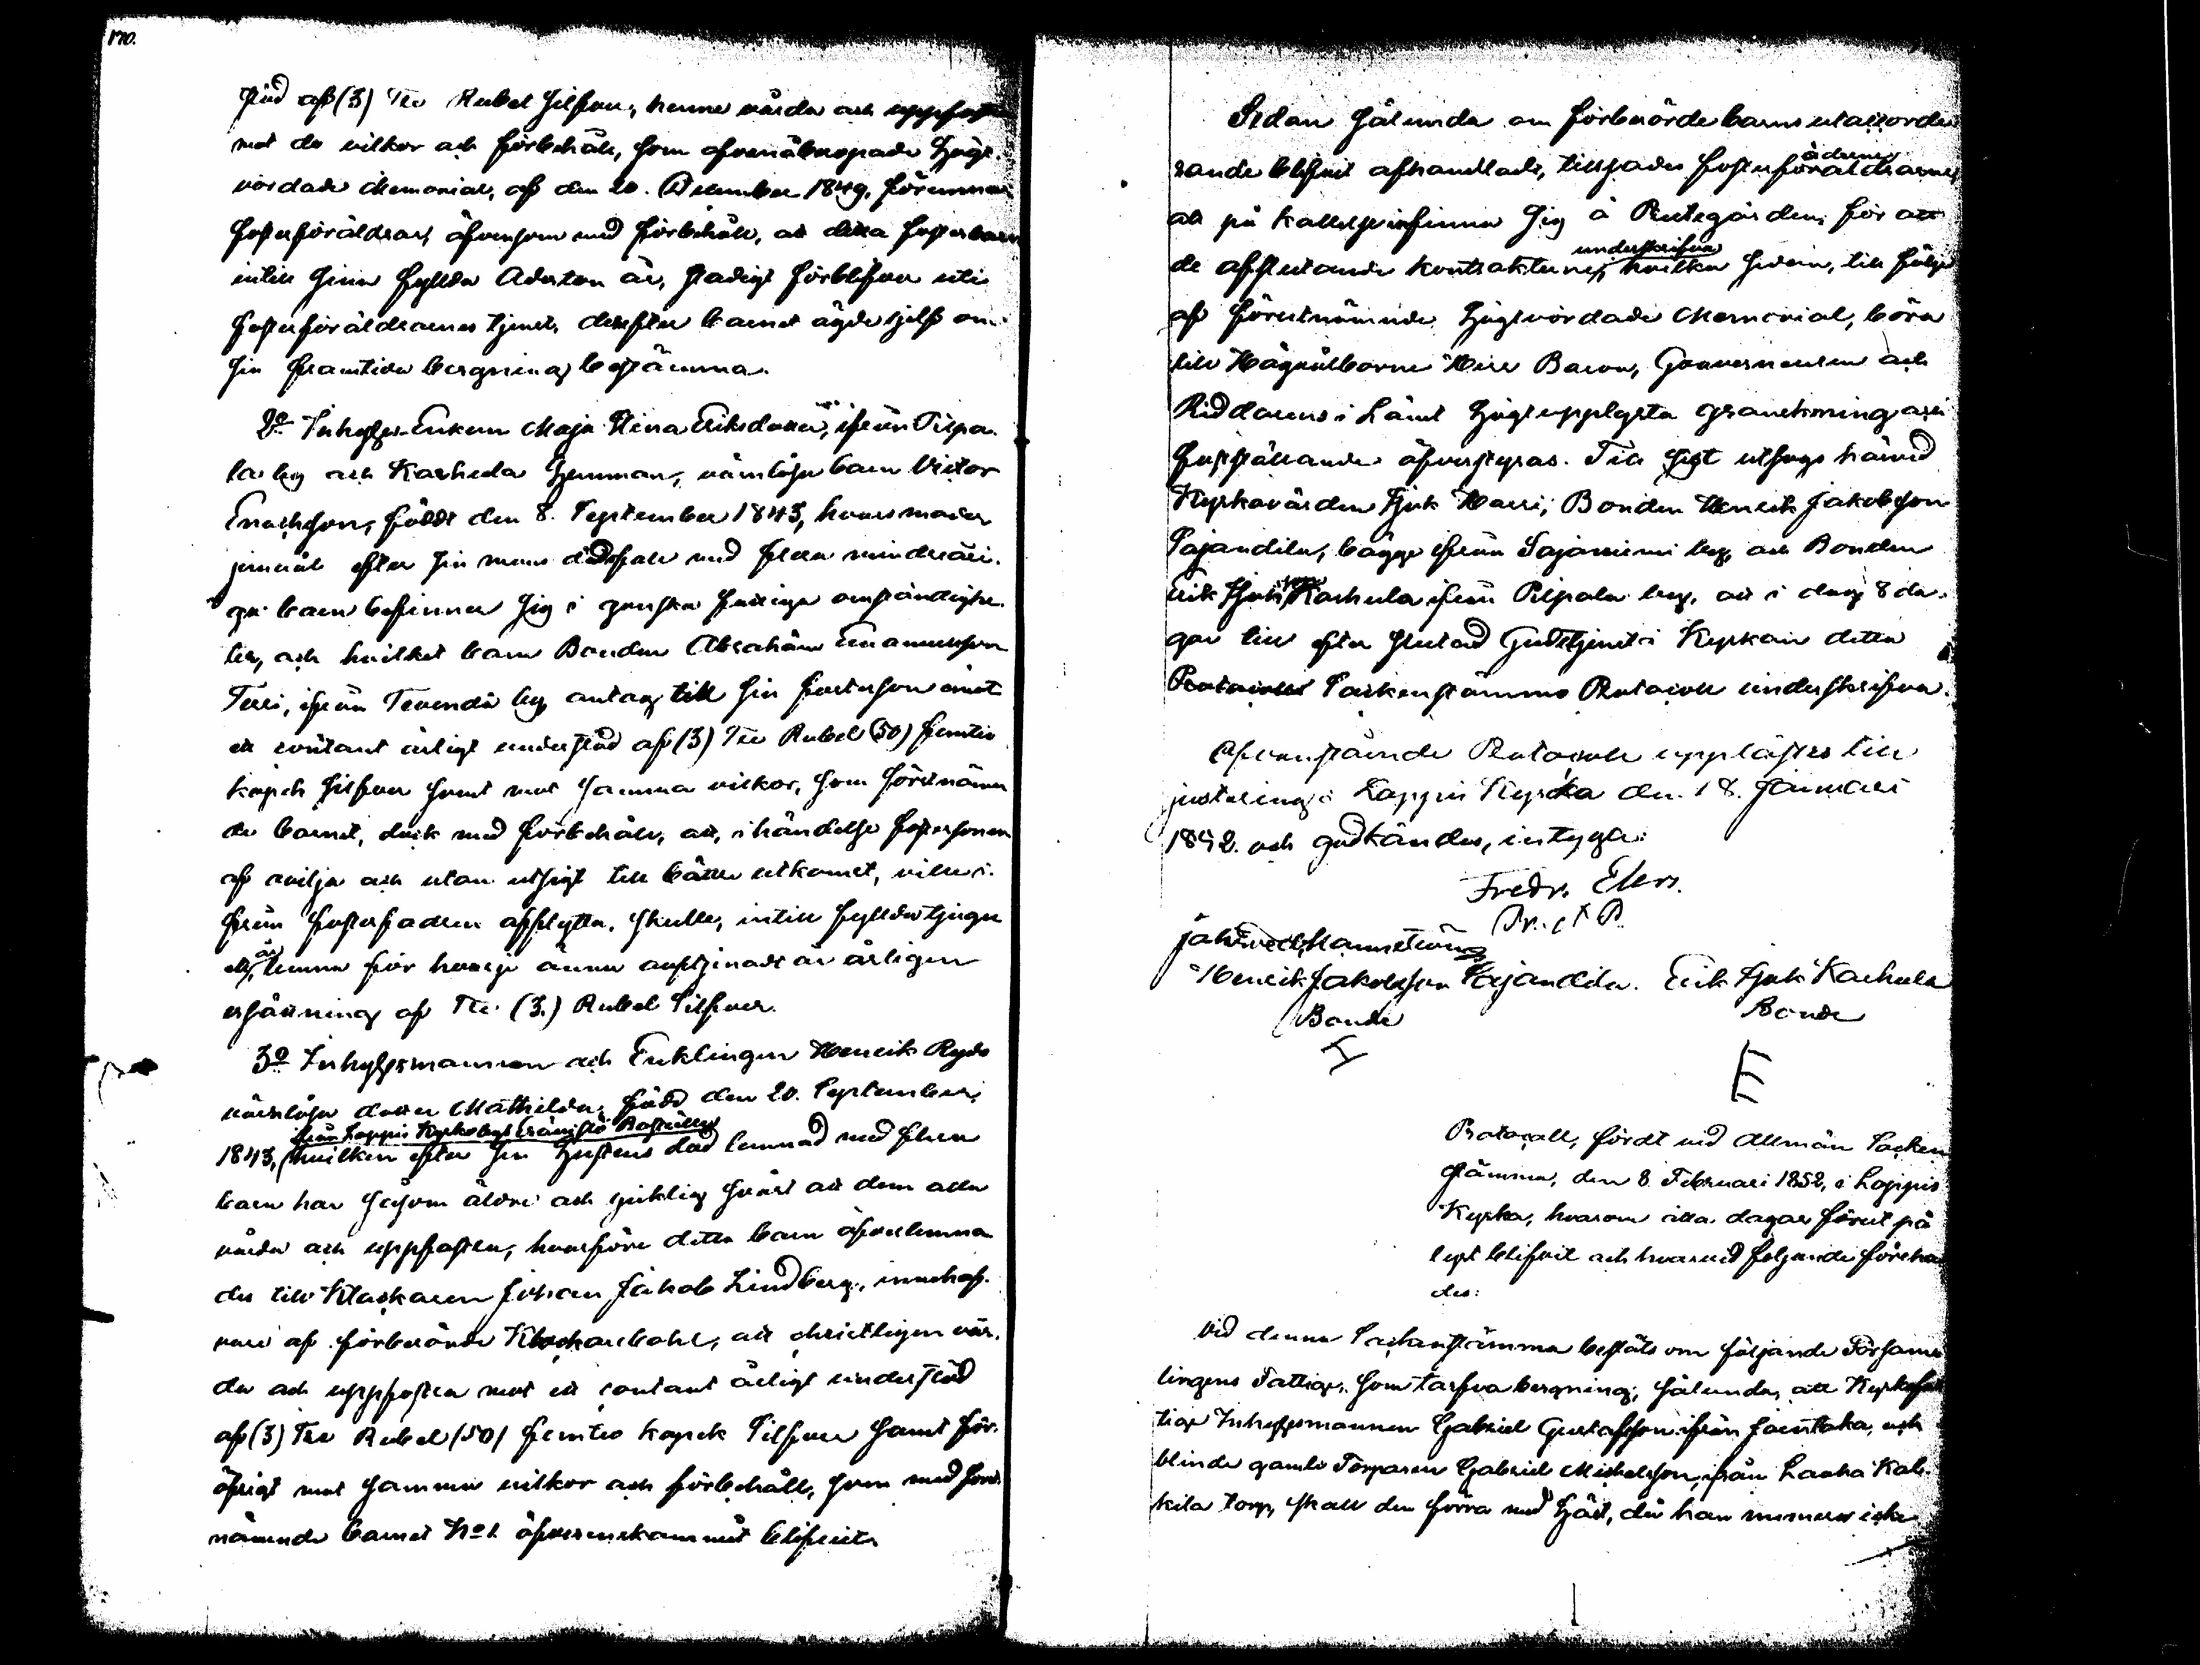 170.
stöd af (3) Tre Rubel Silfver, henne vårda och uppfostra
mot de vilkor och förbehåll, som ofvanåberopade Högt.
vördade Memorial, af den 20. December 1849, förunnar
fosterföräldrar, äfvensom med förbehåll, at detta fosterbarn
intill sina fyllda Aderton år, stadigt förblifver uti
fosterföräldrarnes tjenst, derefter barnet ägde sjelf om
sin framtida bergning bestämma.
2o Inhyses-Enkan Maja Stina Eriksdotter, ifrån Pilpa
la by och Karhula hemman, värnlösa barn Victor
Enochsson, född den 8. September 1843, hvars moder
jemväl efter sin mans dödsfall med flera minderåri.
ga barn befinner sig i ganska fattiga omständighe.
ter, och hvilket barn Bonden Abraham Emanuelsson
Terri, ifrån Tevendå by, antag till sin fosterson emot
ett contant årligt understöd af (3) Tre Rubel (50) femtio
kopek silfver samt mot samma vilkor, som förstnämn
de barnet, dock med förbehåll, att, i händelse fostersonen
af ovilja och utan utsigt till bättre utkomst, ville i.
från fosterfadren afflytta, skulle, intill fyllda tjugu
ett, år lemna för hvarje ännu aftjenadt år årligen
ersättning af Tre (3.) Rubel Silfver.
3o Inhysesmannen och Enklingen Henrik Ryds
värnlösa dotter Mathilda, född den 20. September
från Loppis Kyrkoby Prästgård Bostället
1843, hvilken efter sin hustrus död lemnad med flera
barn har såsom äldre och sjuklig svårt att dem alla
vårda och uppfostra, hvarföre detta barn öfverlemna
des till Klockaren Johan Jakob Lindberg, innehaf.
vare af förberörde Klockarebohl, att christligen vår.
da och uppfostra mot ett contant årligt understöd
af (3) Tre Rubel (50) femtio kopek Silfver samt för.
öfrigt mot samma vilkor och förbehåll, som med först
nämnde barnet No 1 öfverenskommit blifvit.
Sedan sålunda om förberörde barns utaccorde
rande blifvit afhandlade, tillsades fosterföräldrarne
äldrarne
att på kallelse infinna sig å Prestegården, för att
underskrifva
de afslutande Kontrakterne, hvilka sedan, till följe
af förutnämnde Högtvördade Memorial, böra
till Högvälborne Herr Baron, Gouverneuren och
Riddarens i Länet högtupplysta granskning och
fastställande öfverstyras. Till sist utsågs härvid
Kyrkovärden Fjuk Harri, Bonden Henrik Jakobsson
Sajandila, bägge ifrån Sajaniemi by, och Bonden
Erik Fjuk Karhula ifrån Pilpala by, att i dag 8 da.
gar till efter slutad Gudstjenst i Kyrkan detta
Protocoll Sockenstämmo Protocoll underskrifva.
Ofvanstående Protocoll upplästes till
justering i Loppis Kyrka den 18. Januari
1852. och godkändes, intyga:
Fredr. Elers.
Pr. et P.
Henrik Jakobsson Sajandila. Erik Fjuk Karhula
Bonde Bonde
H E
Protocoll, fördt vid Allmän Socken
stämma, den 8 Februari 1852, i Loppis
Kyrka, hvarom åtta dagar förut på
lyst blifvit och hvarvid följande föreha
des:
Vid denna Sockenstämma beslöts om följande Försam
lingens Fattige, som tarfva bergning, sålunda, att Kyrkofat
tige Inhysesmannen Gabriel Gustafsson ifrån Joentaka, och
blinde gamle Torparen Gabriel Michelsson, från Laaka Kal.
kila torp, skall den förra med häst, då han numera icke